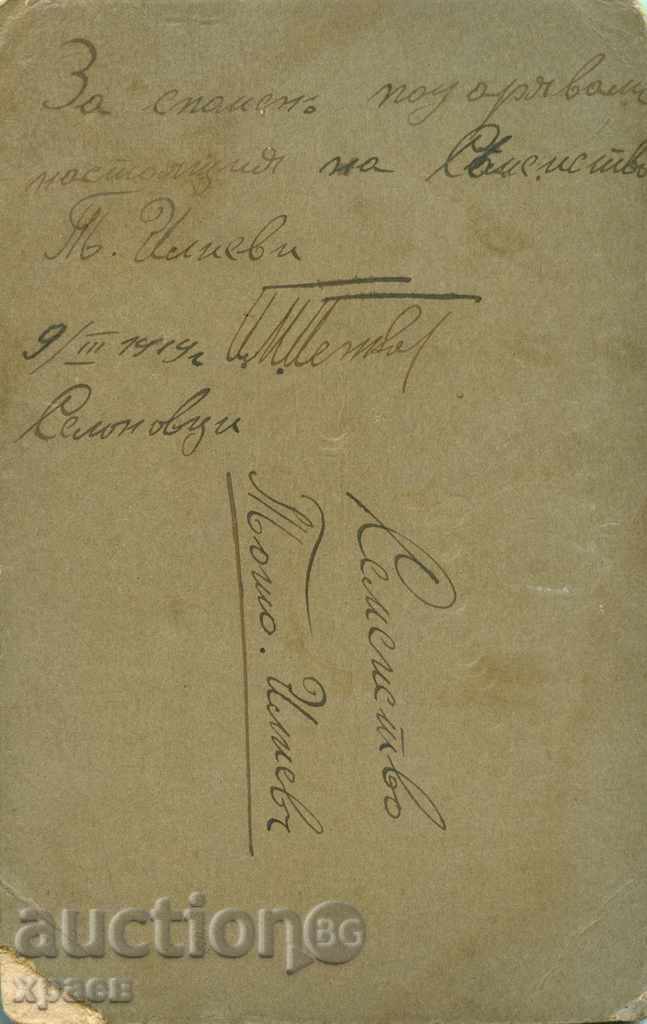 За спомень подарявамъ
настоящия на Семейство
Т. Илиеви
9/III 1919 г.
Селоновци
Семейство
Тошо. Илиевъ
auctionBG
храев